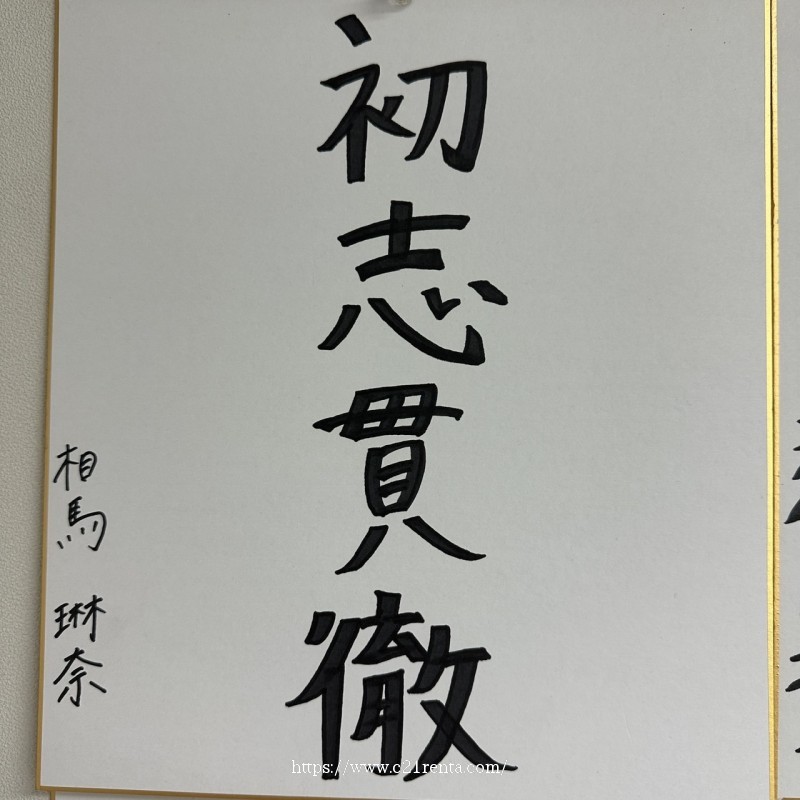 初志貫徹
相馬 琳奈
https://www.c21renta.com/